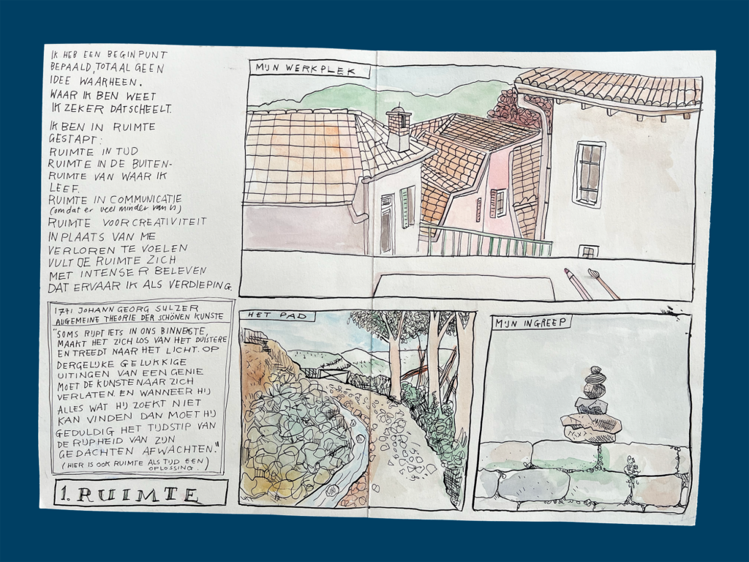 IK HEB EEN BEGINPUNT
BEPAALD, TOTAAL GEEN
IDEE WAARHEEN.
WAAR IK BEN WEET
IK ZEKER DAT SCHEELT.
IK BEN IN RUIMTE
GESTAPT:
RUIMTE IN TIJD
RUIMTE IN DE BUITEN-
RUIMTE VAN WAAR IK
LEEF.
RUIMTE IN COMMUNICATIE
(omdat er veel minder van is)
RUIMTE VOOR CREATIVITEIT
IN PLAATS VAN ME
VERLOREN TE VOELEN
VULT DE RUIMTE ZICH
MET INTENSER BELEVEN
DAT ERVAAR IK ALS VERDIEPING.
1771 JOHANN GEORG SULZER
ALGEMEINE THEORIE DER SCHÖNEN KUNSTE
"SOMS RIJPT IETS IN ONS BINNENSTE,
MAAKT HET ZICH LOS VAN HET DUISTERE
EN TREEDT NAAR HET LICHT. OP
DERGELIJKE GELUKKIGE
UITINGEN VAN EEN GENIE
MOET DE KUNSTENAAR ZICH
VERLATEN EN WANNEER HIJ
ALLES WAT HIJ ZOEKT NIET
KAN VINDEN DAN MOET HIJ
GEDULDIG HET TIJDSTIP VAN
DE RIJPHEID VAN ZIJN
GEDACHTEN AFWACHTEN."
(HIER IS OOK RUIMTE ALS TIJD EEN
OPLOSSING.)
1. RUIMTE
MIJN WERKPLEK
HET PAD
MIJN INGREEP